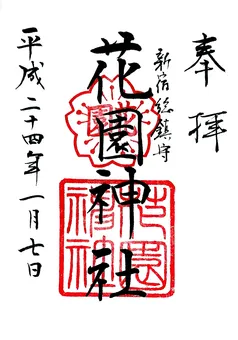 奉拝
新宿総鎮守
花園神社
平成二十四年一月七日
花園神社